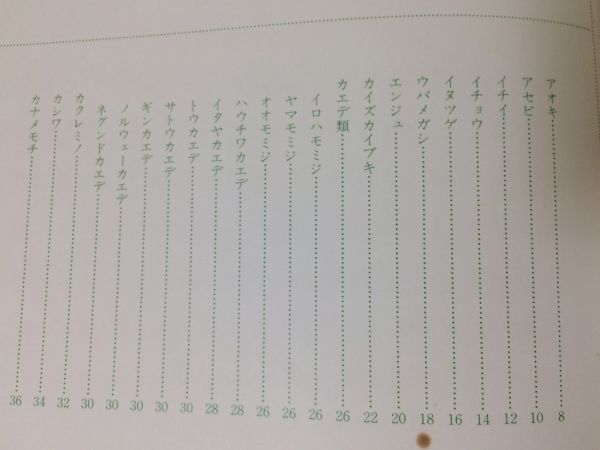 アオキ 8
アセビ 10
イチイ 12
イチョウ 14
イヌツゲ 16
ウバメガシ 18
エンジュ 20
カイズカイブキ 22
カエデ類 26
イロハモミジ 26
ヤマモミジ 26
オオモミジ 26
ハウチワカエデ 28
イタヤカエデ 28
トウカエデ 30
サトウカエデ 30
ギンカエデ 30
ノルウェーカエデ 30
ネグンドカエデ 30
カクレミノ 32
カシワ 34
カナメモチ 36